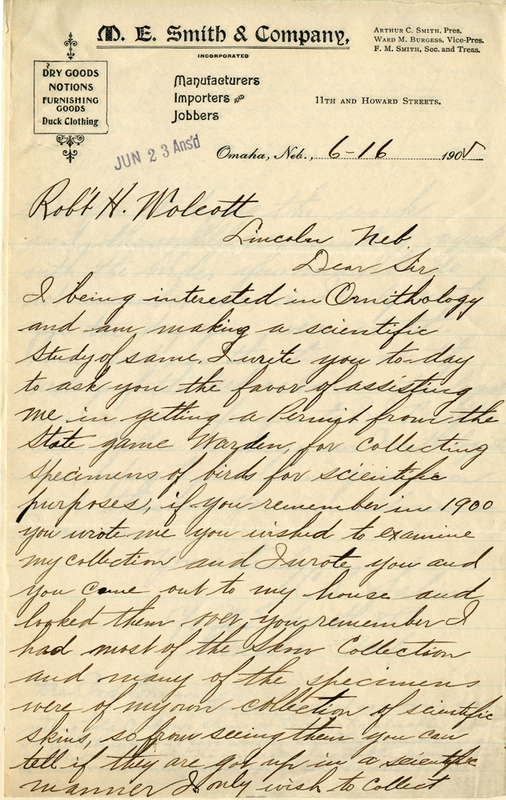 M. E. Smith & Company,
INCORPORATED
ARTHUR C. SMITH, PRES.
WARD M. BURGESS, VICE-PRES.
F. M. SMITH, SEC. AND TREAS.
DRY GOODS
NOTIONS
FURNISHING
GOODS
Duck Clothing
Manufacturers
Importers and
Jobbers
11TH AND HOWARD STREETS.
JUN 23 Ans'd
Omaha, Neb., 6-16 190
Robt H. Wolcott
Lincoln Neb.
Dear Sir
I being interested in Ornithology
and am making a scientific
study of same, I write you to-day
to ask you the favor of assisting
me, in getting a Permit from the
State game Warden, for collecting
specimens of birds for scientific
purposes, if you remember in 1900
you wrote me you wished to examine
my collection and I wrote you and
you came out to my house and
looked them over, you remember I
had most of the Skow Collection
and many of the specimens
were of my own collection of scientific
skins, so from seeing them you can
tell if they are got up in a scientific
manner I only wish to collect